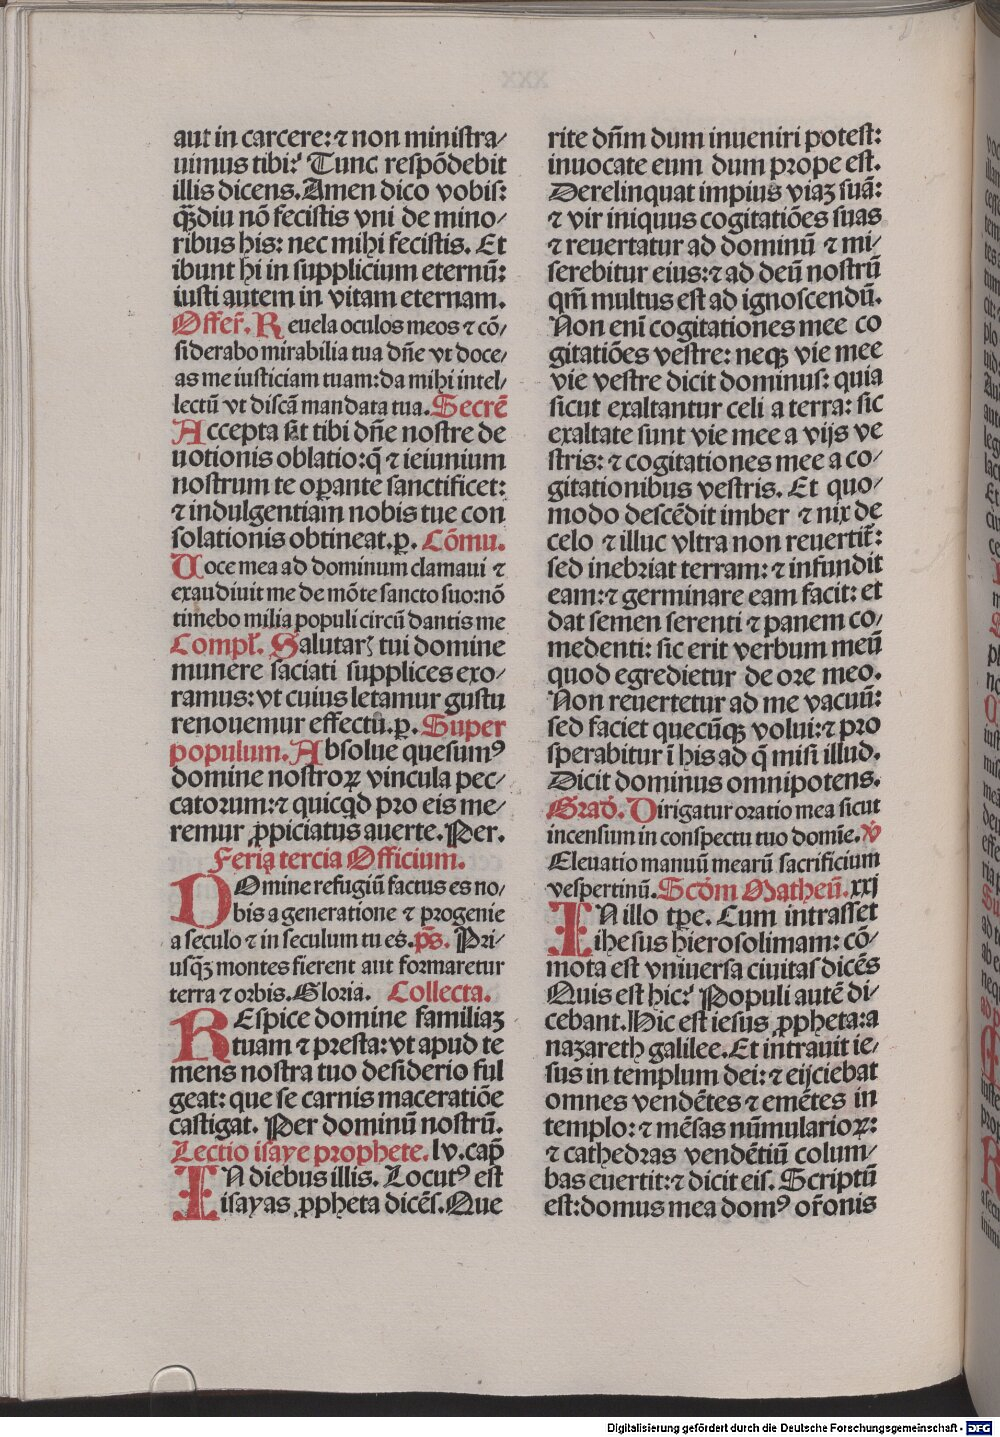 aut in carcere: ⁊ non ministra/
uimus tibi? Tunc respõdebit
illis dicens. Amen dico vobis:
qꝫdiu nõ fecistis vni de mino/
ribus his: nec mihi fecistis. Et
ibunt hi in supplicium eternũ:
iusti autem in vitam eternam.
Offer̃. Reuela oculos meos ⁊ cõ/
siderabo mirabilia tua dñe vt doce/
as me iusticiam tuam: da mihi intel/
lectũ vt discã mandata tua. Secrẽ
Accepta sĩt tibi dñe nostre de
uotionis oblatio: q̃ ⁊ ieiunium
nostrum te oꝑante sanctificet:
⁊ indulgentiam nobis tue con
solationis obtineat. p. Cõmu.
Uoce mea ad dominum clamaui ⁊
exaudiuit me de mõte sancto suo: nõ
timebo milia populi circũ dantis me
Compl̃. Salutarꝭ tui domine
munere saciati supplices exo/
ramus: vt cuius letamur gustu
renouemur effectu. p. Super
populum. Absolue quesumꝰ
domine nostroꝝ vincula pec/
catorum: ⁊ quicq̇d pro eis me/
remur ꝓpiciatus auerte. Per.
Feria tercia Officium.
DOmine refugiũ factus es no/
bis a generatione ⁊ progenie
a seculo ⁊ in seculum tu es. p̃s. Pri/
usqꝫ montes fierent aut formaretur
terra ⁊ orbis. Gloria. Collecta.
REspice domine familiaꝫ
tuam ⁊ presta: vt apud te
mens nostra tuo desiderio ful
geat: que se carnis maceratiõe
castigat. Per dominũ nostrũ.
Lectio isaye prophete. lv. cap̃
IN diebus illis. Locutꝰ est
isayas ꝓpheta dicẽs. Que
rite dñm dum inueniri potest:
inuocate eum dum prope est.
Derelinquat impius viaꝫ suã:
⁊ vir iniquus cogitatiões suas
⁊ reuertatur ad dominũ ⁊ mi/
serebitur eius: ⁊ ad deũ nostrũ
qm̃ multus est ad ignoscendũ.
Non enĩ cogitationes mee co
gitatiões vestre: neqꝫ vie mee
vie vestre dicit dominus: quia
sicut exaltantur celi a terra: sic
exaltate sunt vie mee a vijs ve
stris: ⁊ cogitationes mee a co/
gitationibus vestris. Et quo/
modo descẽdit imber ⁊ nix de
celo ⁊ illuc vltra non reuertit̃:
sed inebriat terram: ⁊ infundit
eam: ⁊ germinare eam facit: et
dat semen serenti ⁊ panem co/
medenti: sic erit verbum meũ
quod egredietur de ore meo.
Non reuertetur ad me vacuũ:
sed faciet quecũqꝫ volui: ⁊ pro
sperabitur ĩ his ad q̃ misi illud.
Dicit dominus omnipotens.
Grad̃. Dirigatur oratio mea sicut
incensum in conspectu tuo domĩe. ℣
Eleuatio manuũ mearũ sacrificium
vespertinũ. Scd̃m Matheũ. xxj
IN illo tꝑe. Cum intrasset
ihesus hierosolimam: cõ/
mota est vniuersa ciuitas dicẽs
Quis est hic? Populi autẽ di/
cebant. Hic est iesus ꝓpheta: a
nazareth galilee. Et intrauit ie/
sus in templum dei: ⁊ eijciebat
omnes vendẽtes ⁊ emẽtes in
templo: ⁊ mẽsas nũmularioꝝ:
⁊ cathedras vendẽtiũ colum/
bas euertit: ⁊ dicit eis. Scriptũ
est: domus mea domꝰ or̃onis
Digitalisierung gefördert durch die Deutsche Forschungsgemeinschaft - DFG